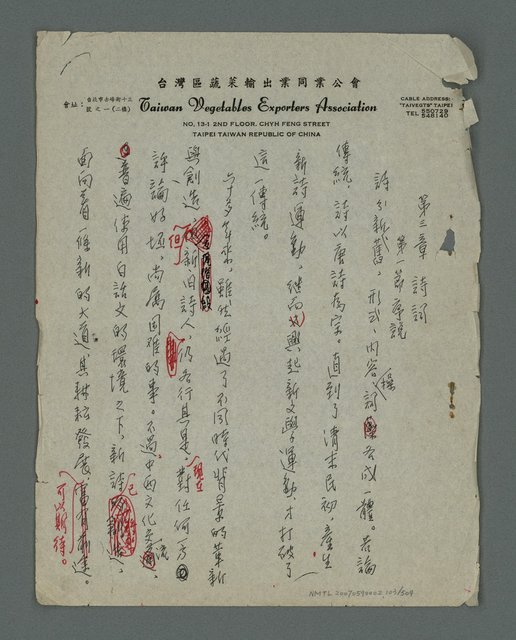 台灣區蔬菜輸出業同業公會
會址：台北市赤峰街十三號之一(二樓)
Taiwan Vegetables Exporters Association
NO. 13-1 2ND FLOOR. CHYH FENG STREET
TAIPEI TAIWAN REPUBLIC OF CHINA
CABLE ADDRESS:
"TAIVEGTS" TAIPEI
TEL 550729
548140
第三章 詩詞
第一節 序說
詩分新舊，形式、內容 詞 各成一體。若論
傳統，詩以唐詩為宗。直到了清末民初，產生
新詩運動，繼而興起新文學運動，才打破了
這一傳統。
六十多年來，雖然經過了不同時代背景的革新
與創造，但新、舊詩人，仍各行其是，現在對任何一方
評論好壞，尚屬困難的事。不過，中西文化交流，
普遍使用白話文的環境之下，新詩已
面向着一條新的大道，其耕耘發展，可以期待。
NMTL 20070590002 103/504